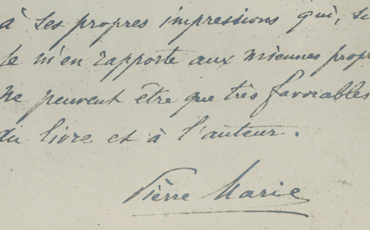 à ses propres impressions qui, si
je m'en rapporte aux miennes prop
ne peuvent être que très favorables
du livre et à l'auteur.
Pierre Marie